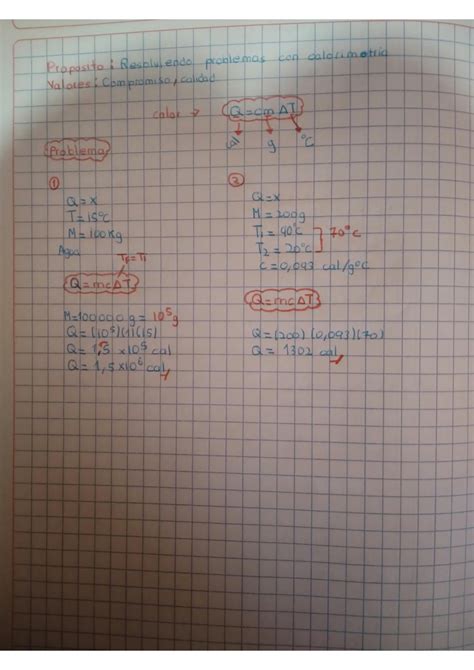 Proposito: Resolviendo problemas con calorimetria
Valores: Compromiso, calidad
calor → Q=cmΔT
cal g °C
Problema
①
Q=x
T=15°C
M=100Kg
Agua
TF=Ti
Q=mcΔT
M=100000 g = 10⁵g
Q=(10⁵)(1)(15)
Q= 1,5 ×10⁵ cal
Q= 1,5×10⁶ cal
②
Q=x
M=200g
T1=90°C
T2=20°C
] 70°C
C=0,093 cal/g°C
Q=mcΔT
Q=(200)(0,093)(70)
Q= 1302 cal